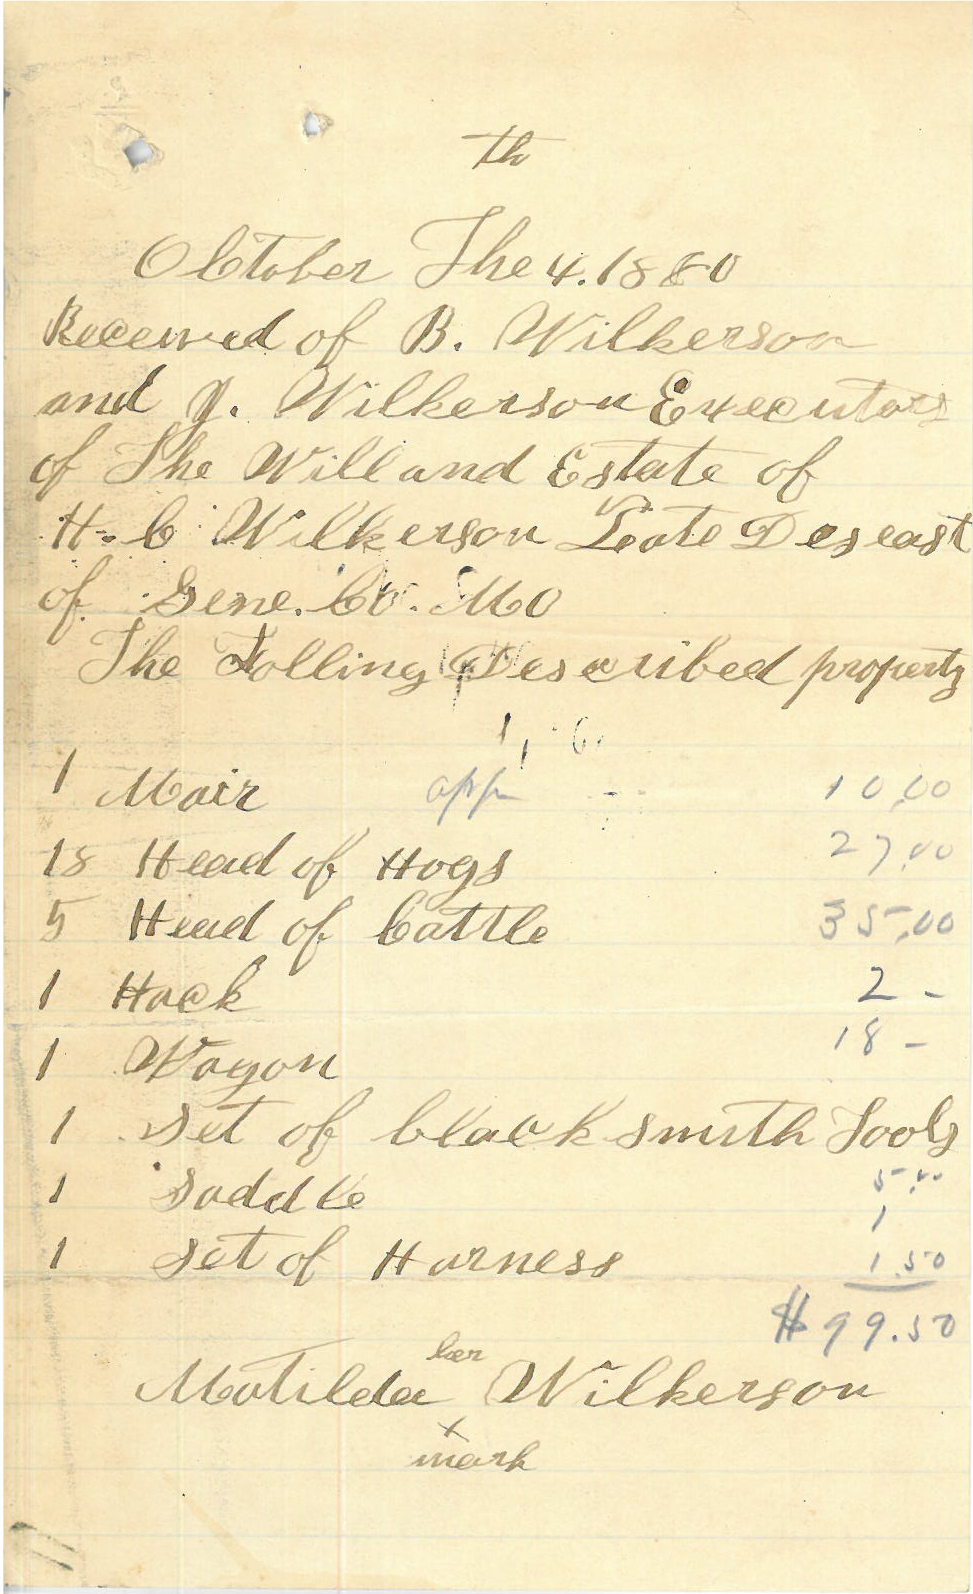 th
October The 4. 1880
Received of B. Wilkerson
and J. Wilkerson Executors
of The Will and Estate of
H. C Wilkerson Leate Deseast
of Gene. Co. Mo
The Folling Described property
1 Mair app 10,00
18 Head of Hogs 27,00
5 Head of Cattle 35,00
1 Hack 2 -
1 Wagon 18 -
1 Set of black smith Tools
1 Saddle 5.00
1
1 Set of Harness 1.50
$99.50
her
Matilda Wilkerson
x
mark